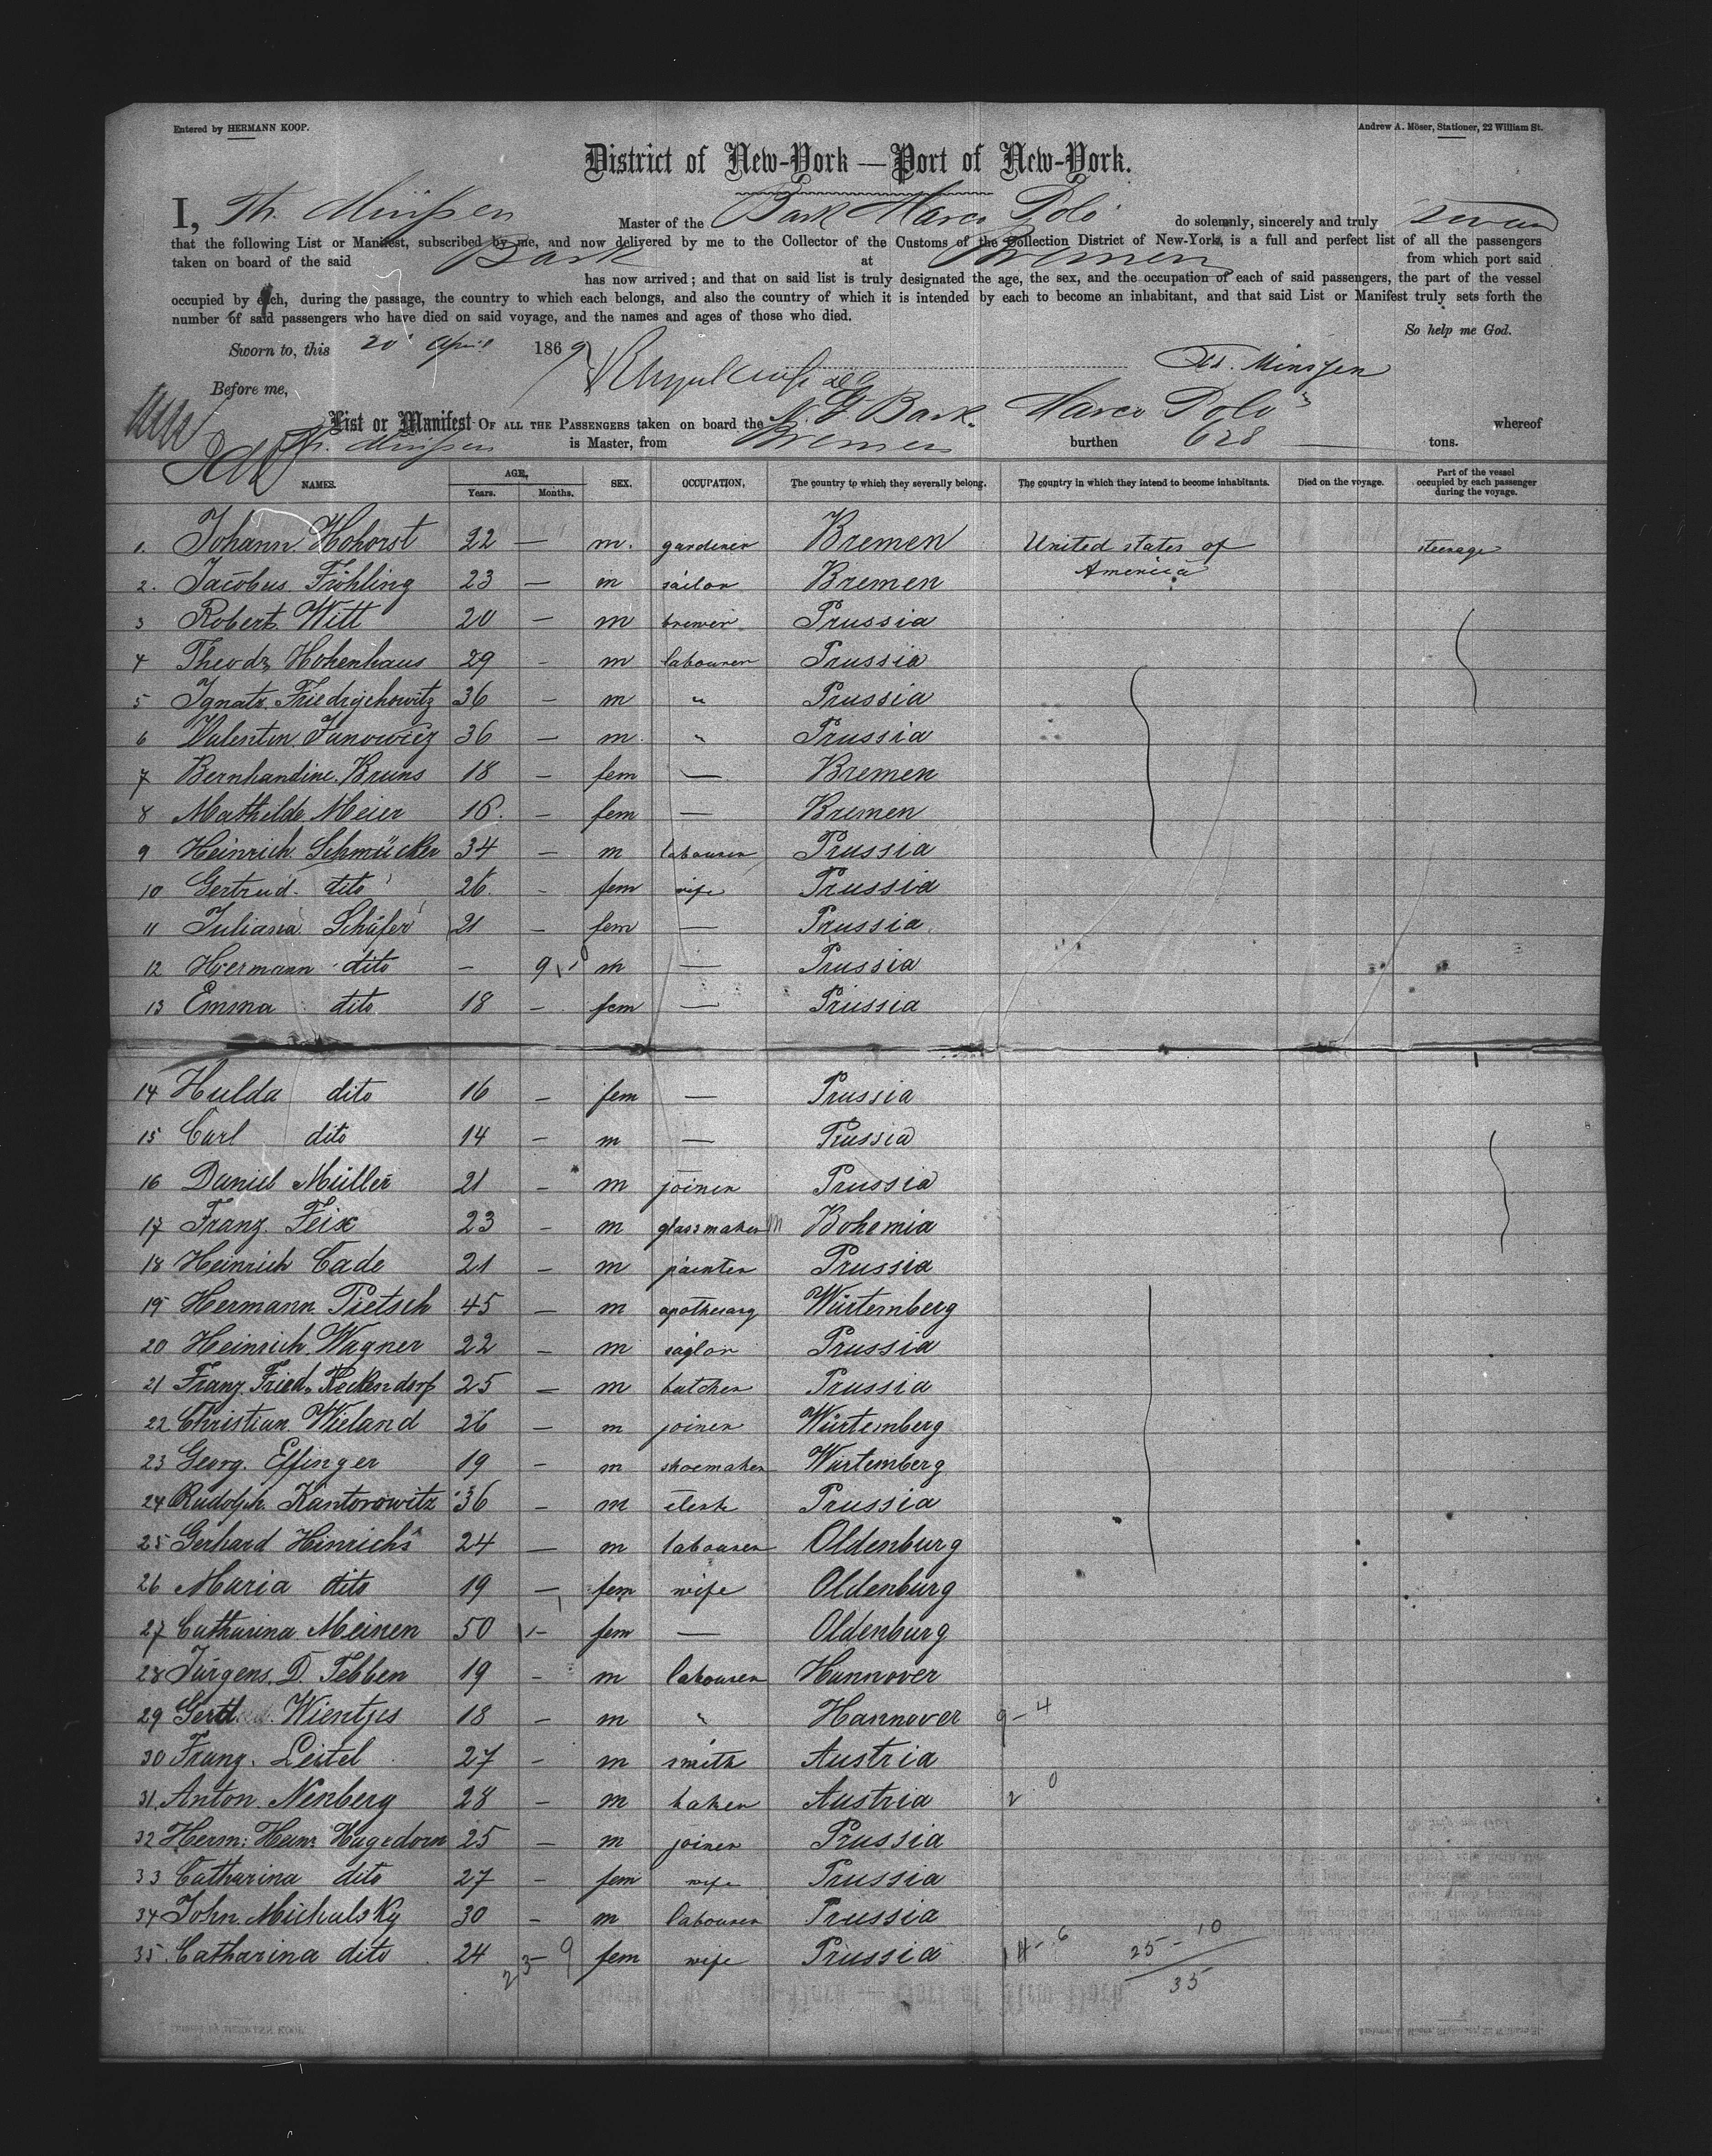 Entered by HERMANN KOOP.
Andrew A. Möser, Stationer, 22 William St.
District of New-York — Port of New-York.
I, Th. Minssen Master of the Bark Marco Polo do solemnly, sincerely and truly swear
that the following List or Manifest, subscribed by me, and now delivered by me to the Collector of the Customs of the Collection District of New-York, is a full and perfect list of all the passengers
taken on board of the said Bark at Bremen from which port said
has now arrived; and that on said list is truly designated the age, the sex, and the occupation of each of said passengers, the part of the vessel
occupied by each, during the passage, the country to which each belongs, and also the country of which it is intended by each to become an inhabitant, and that said List or Manifest truly sets forth the
number of said passengers who have died on said voyage, and the names and ages of those who died.
So help me God.
Sworn to, this 20 April 1869
Th. Minssen
Before me,
List or Manifest OF ALL THE PASSENGERS taken on board the N. G. Bark Marco Polo whereof
Th. Minssen is Master, from Bremen burthen 628 tons.
NAMES. AGE. Years. Months. SEX. OCCUPATION. The country to which they severally belong. The country in which they intend to become inhabitants. Died on the voyage. Part of the vessel occupied by each passenger during the voyage.
1. Johann Hohorst 22 — m. gardener Bremen United states of America steerage
2. Jacobus Fröhling 23 — m sailor Bremen
3 Robert Witt 20 — m brewer Prussia
4 Theodr Hohenhaus 29 - m labourer Prussia
5 Ignatz Friedrychowitz 36 — m " Prussia
6 Valentin Janowicz 36 — m. " Prussia
7 Bernhardine Bruns 18 - fem — Bremen
8 Mathilde Meier 16. - fem — Bremen
9 Heinrich Schmücker 34 — m labourer Prussia
10 Gertrud dito 26. - fem wife Prussia
11 Juliana Schäfer 21 - fem — Prussia
12 Hermann dito - 9 m — Prussia
13 Emma dito 18 - fem — Prussia
14 Hulda dito 16 - fem — Prussia
15 Carl dito 14 - m — Prussia
16 Daniel Müller 21 - m joiner Prussia
17 Franz Feix 23 - m glassmaker Bohemia
18 Heinrich Cade 21 - m painter Prussia
19 Hermann Pietsch 45 — m apothecary Würtemberg
20 Heinrich Wagner 22 — m saylor Prussia
21 Franz Fried. Reckendorf 25 — m butcher Prussia
22 Christian Wieland 26 — m joiner Würtemberg
23 Georg Effinger 19 - m shoemaker Würtemberg
24 Rudolph Kantorowitz 36 - m clerk Prussia
25 Gerhard Hinrichs 24 — m labourer Oldenburg
26 Maria dito 19 — fem wife Oldenburg
27 Catharina Meinen 50 - fem — Oldenburg
28 Jürgens D. Tebben 19 - m labourer Hannover
29 Gerd Wientjes 18 - m " Hannover 9-4
30 Franz Leitel 27 - m smith Austria
31 Anton Nenberg 28 - m baker Austria 2 0
32 Herm: Heinr Hagedorn 25 - m joiner Prussia
33 Catharina dito 27 - fem wife Prussia
34 John Michalsky 30 - m labourer Prussia
35 Catharina dito 24 - fem wife Prussia 14-6 25-10
23 9 35